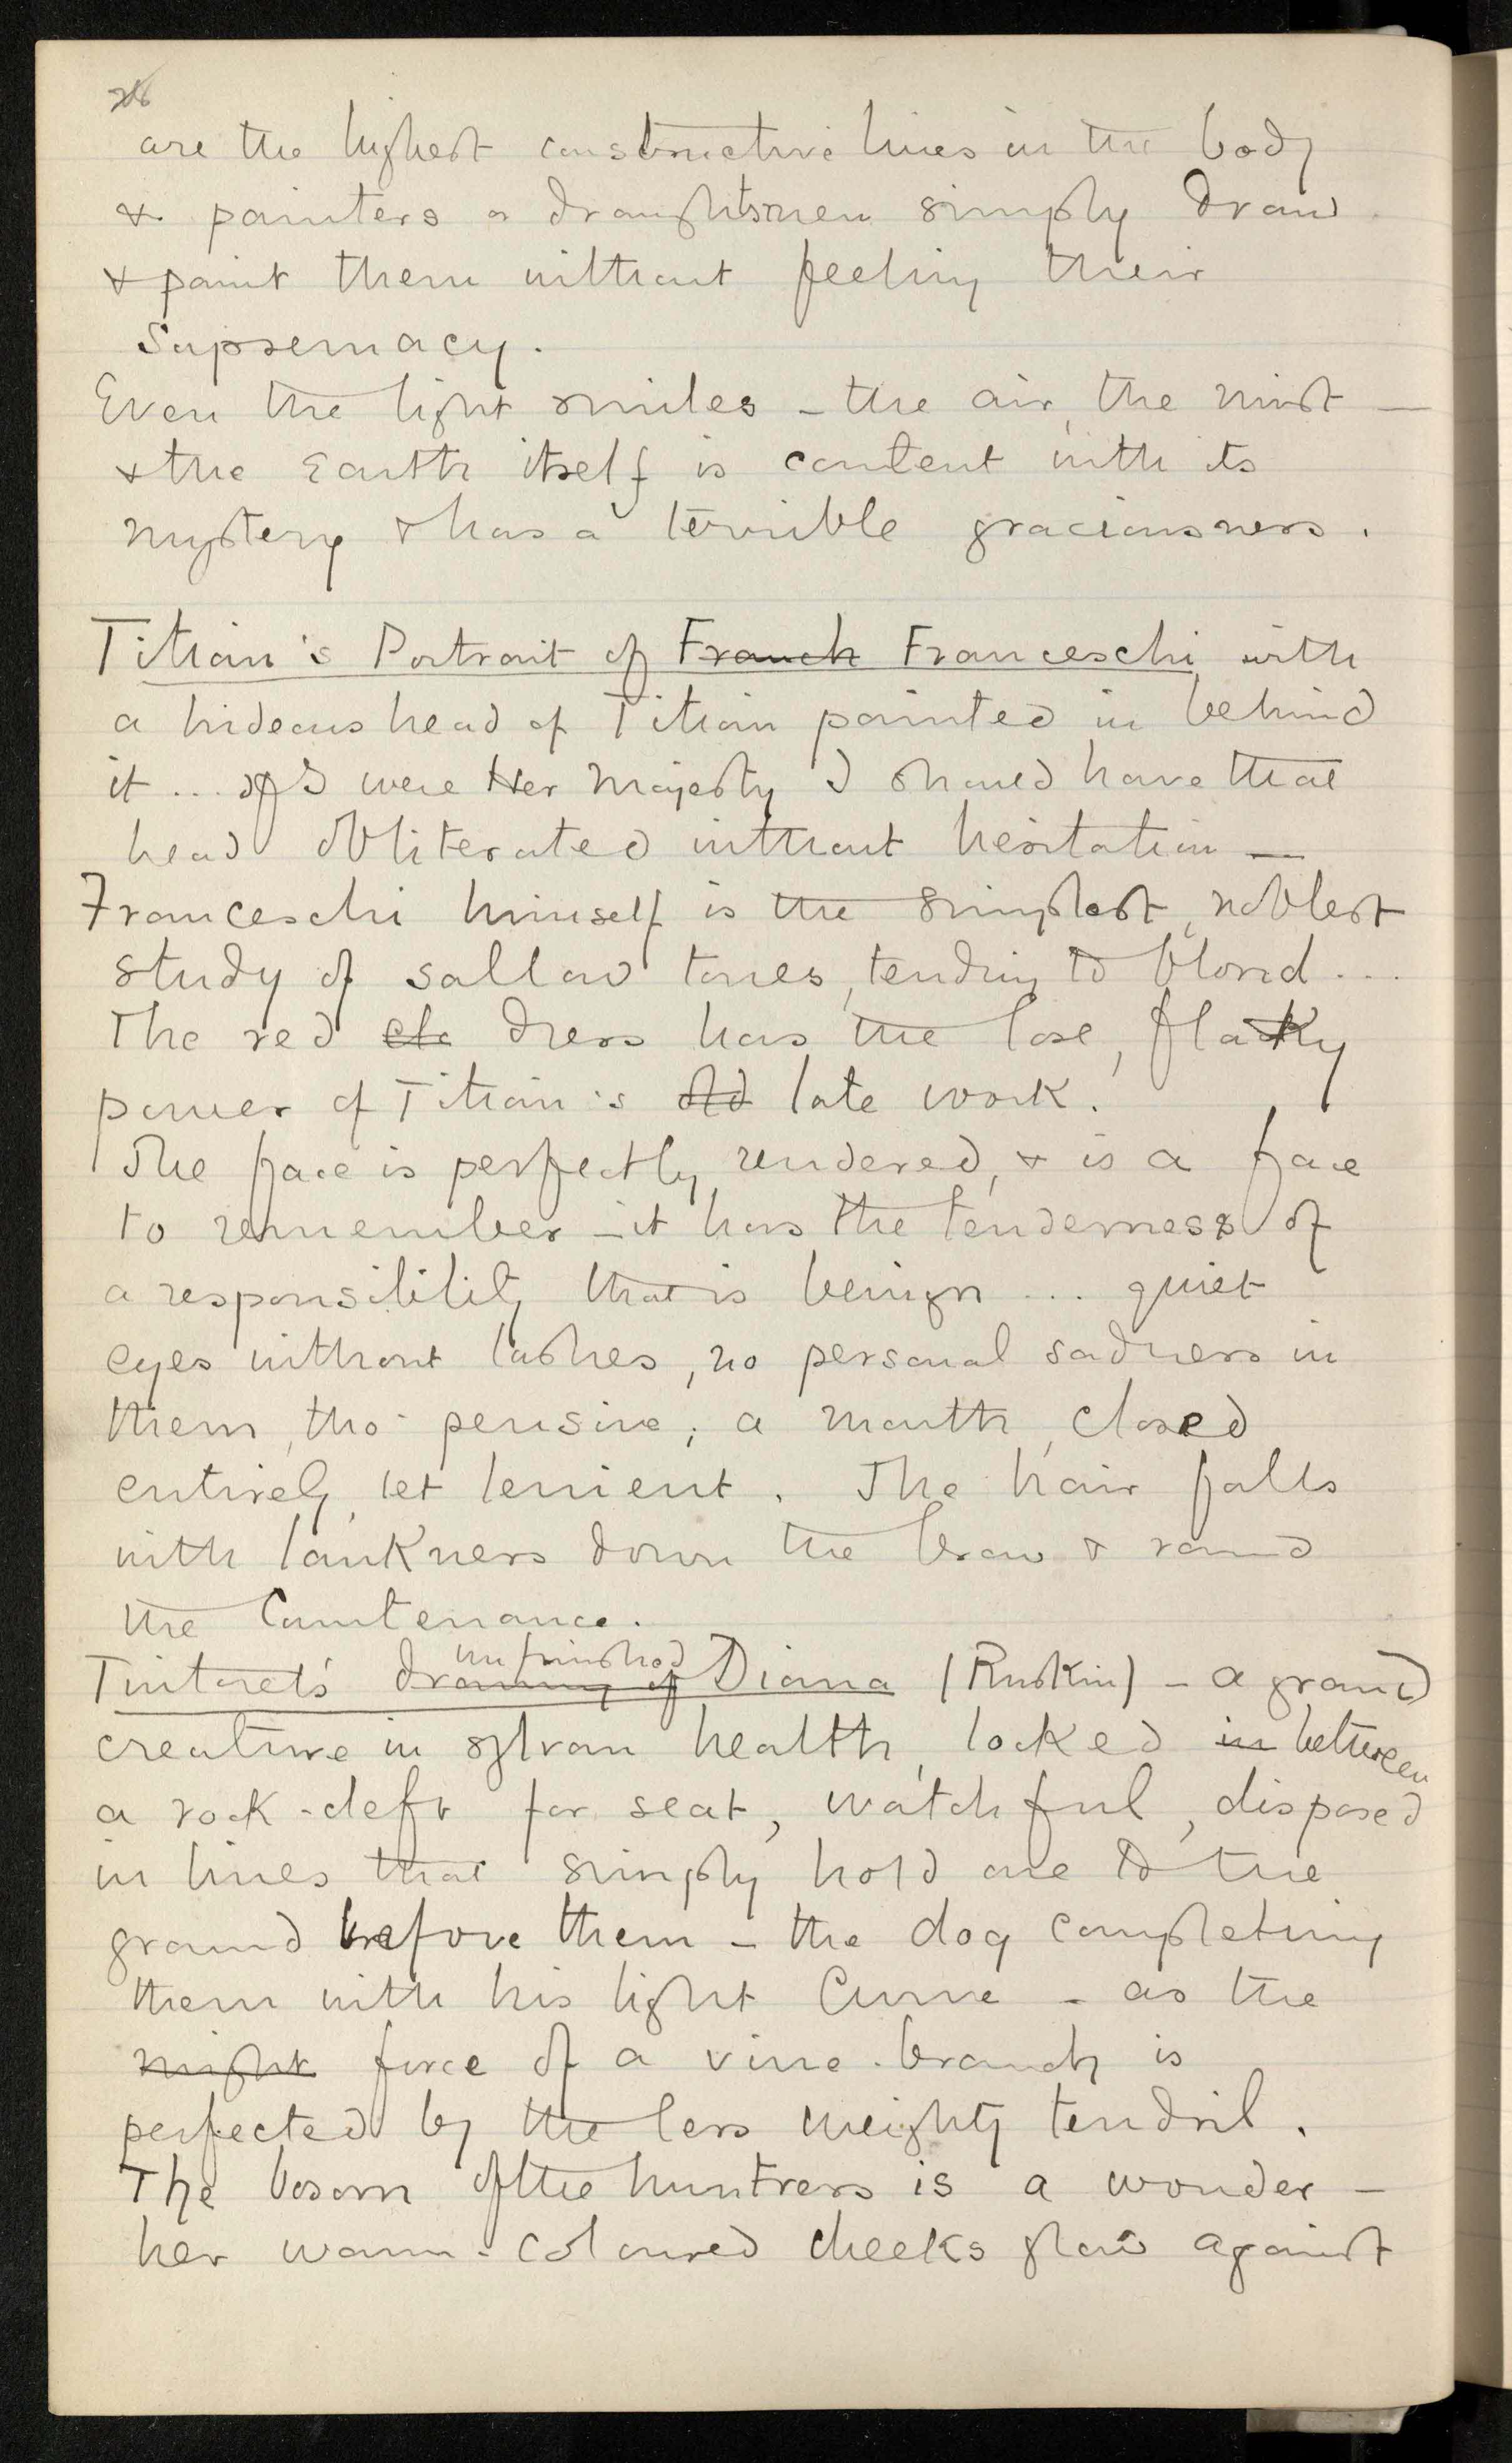 26
are the highest constructive lines in the body
& painters or draughtsmen simply draw
& paint them without feeling their
supremacy.
Even the light smiles – the air, the mist —
& the Earth itself is content with its
mystery & has a terrible graciousness.
Titian's Portrait of Franch Franceschi with
a hideous head of Titian painted in behind
it ... If I were Her Majesty I should have that
head obliterated without hesitation —
Franceschi himself is the simplest, noblest
study of sallow tones, tending to blond ...
The red clo dress has the lose, flaky
power of Titian's old late work.
The face is perfectly rendered, & is a face
to remember – it has the tenderness of
a responsibility that is benign ... quiet
eyes without lashes, no personal sadness in
them, tho' pensive; a mouth, closed
entirely, yet lenient. The hair falls
with lankness down the brow & round
the Countenance.
Tintoret's drawing of unfinished Diana (Ruskin) – a grand
creature in sylvan health, locked in between
a rock-cleft for seat, watchful, disposed
in lines that simply hold one to the
ground before them – the dog completing
them with his light Curve – as the
might force of a vine-branch is
perfected by the less weighty tendril.
The bosom of the huntress is a wonder –
her warm-coloured cheeks glow against